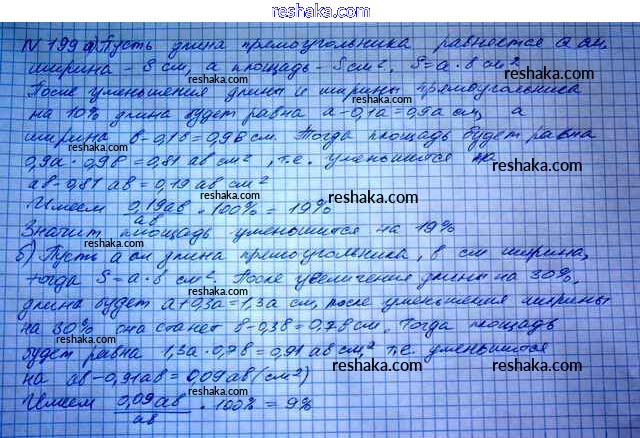 reshaka.com
№ 199 а) Пусть длина прямоугольника равняется a см,
ширина - в см, а площадь - S см², S = a · в см²
После уменьшения длины и ширины прямоугольника
на 10% длина будет равна a - 0,1a = 0,9a см, а
ширина в - 0,1в = 0,9в см. Тогда площадь будет равна
0,9a · 0,9в = 0,81 aв см², т.е. уменьшится на
aв - 0,81 aв = 0,19 aв см²
Имеем 0,19aв / aв · 100% = 19%
Значит площадь уменьшится на 19%
б) Пусть a см длина прямоугольника, в см ширина,
тогда S = a · в см². После увеличения длины на 30%,
длина будет a + 0,3a = 1,3a см, после уменьшения ширины
на 30% она станет в - 0,3в = 0,7в см. Тогда площадь
будет равна 1,3a · 0,7в = 0,91 aв см², т.е. уменьшится
на aв - 0,91aв = 0,09aв (см²)
Имеем 0,09aв / aв · 100% = 9%
reshaka.com
reshaka.com
reshaka.com
reshaka.com
reshaka.com
reshaka.com
reshaka.com
reshaka.com
reshaka.com